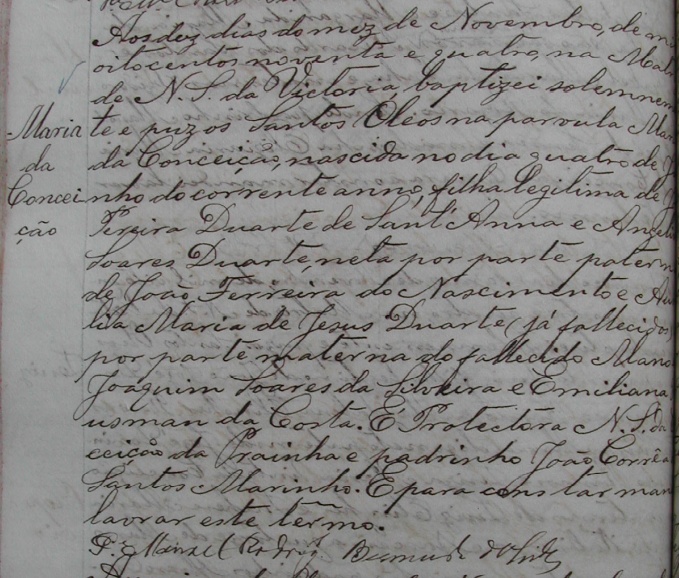 Aos dez dias do mez de Novembro, de m
oitocentos noventa e quatro, na Mat
de N. S. da Victoria, baptizei solemnem
Maria
te e puz os Santos Oleos na parvula Mar
da
da Conceição, nascida no dia quatro de J
Concei
nho do corrente anno, filha legitima de J
ção
Pereira Duarte de Sant'Anna e Angel
Soares Duarte, neta por parte patern
de João Ferreira do Nascimento e Au
lia Maria de Jesus Duarte (já fallecidos
por parte materna do fallecido Mano
Joaquim Soares da Silveira e Emiliana
usman da Costa. É Protectora N. S. da
ceição da Prainha e padrinho João Corrêa
Santos Marinho. E para constar man
lavrar este termo.
P.e Manoel Rodrig